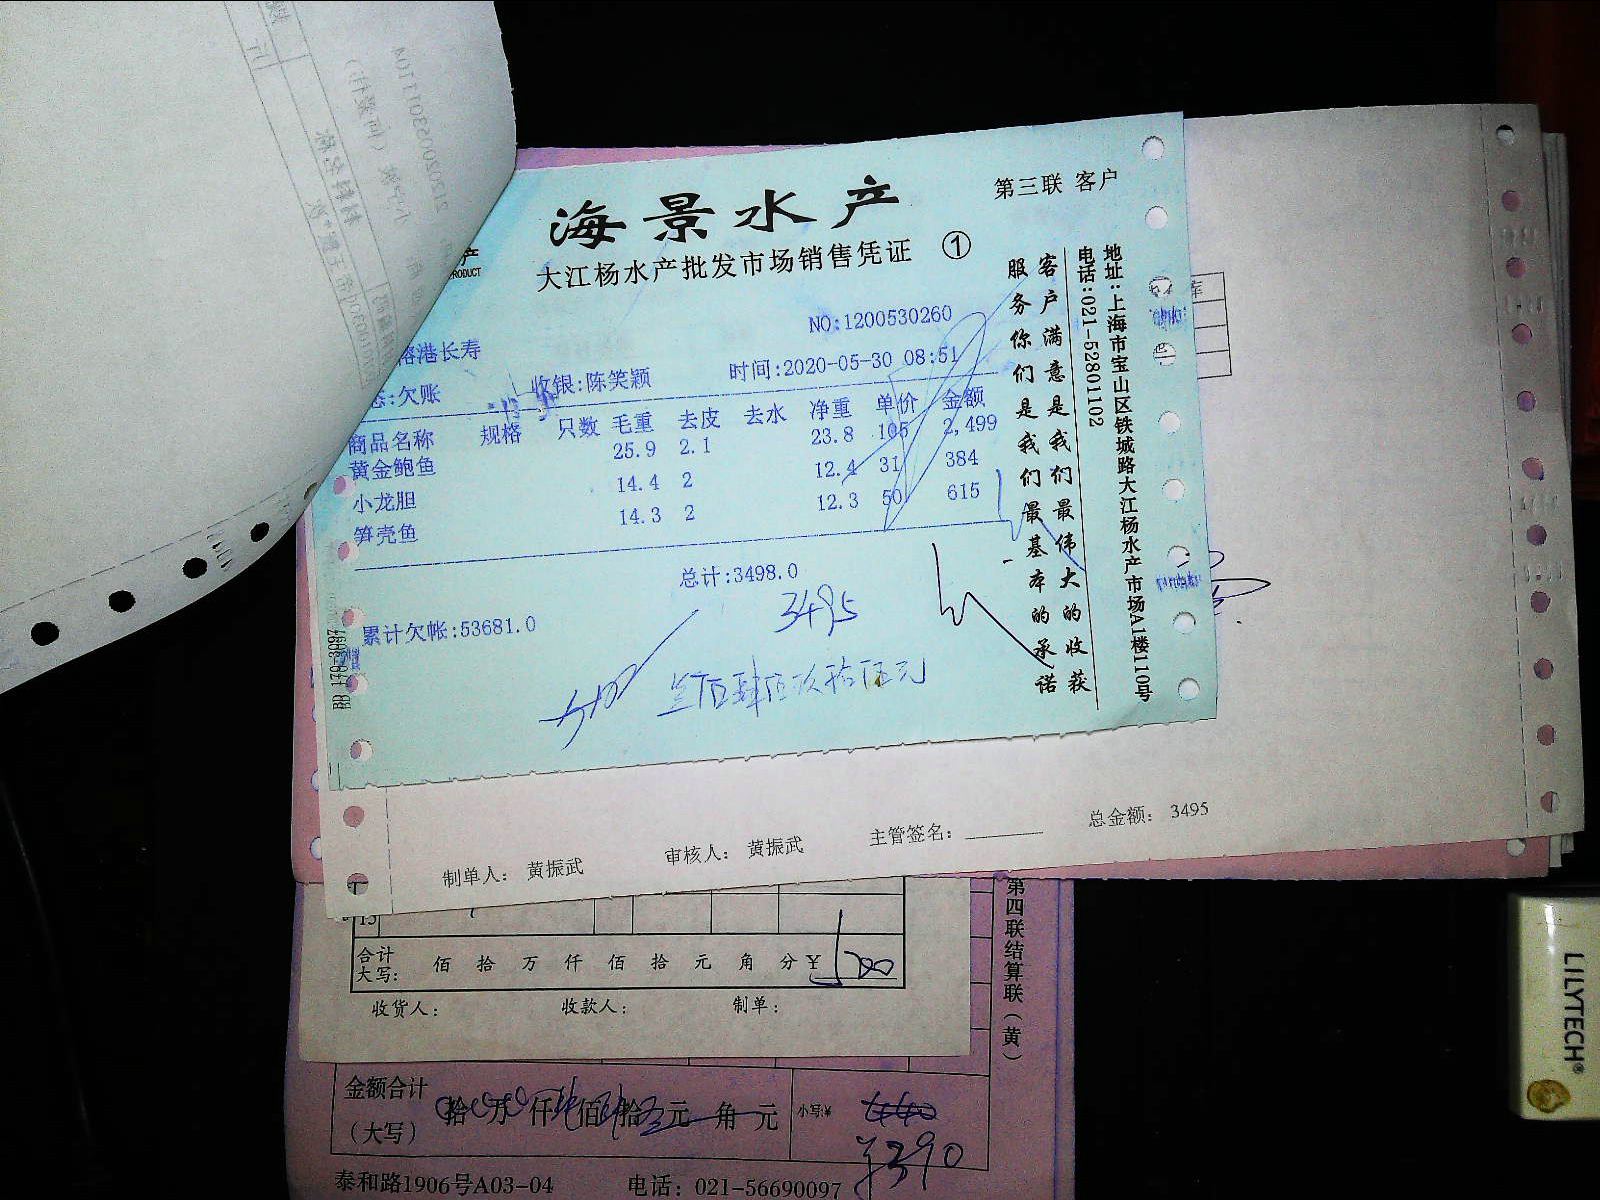 海景水产
第三联 客户
大江杨水产批发市场销售凭证 ①
产
RODUCT
NO:1200530260
港长寿
时间:2020-05-30 08:51
:欠账
收银:陈笑颖
商品名称 规格 只数 毛重 去皮 去水 净重 单价 金额
黄金鲍鱼 25.9 2.1 23.8 105 2,499
小龙胆 14.4 2 12.4 31 384
笋壳鱼 14.3 2 12.3 50 615
总计:3498.0
3495
累计欠帐:53681.0
叁仟肆佰玖拾伍元
客户满意是我们最伟大的收获
服务你们是我们最基本的承诺
地址:上海市宝山区铁城路大江杨水产市场A1楼110号
电话:021-52801102
库
制单人: 黄振武
审核人: 黄振武
主管签名:
总金额: 3495
13
合计
大写: 佰 拾 万 仟 佰 拾 元 角 分 ¥
收货人:
收款人:
制单:
第四联结算联(黄)
金额合计
(大写)
拾 万 仟 佰 拾 元 角 元
小写:¥
¥390
泰和路1906号A03-04
电话: 021-56690097
LILYTECH®